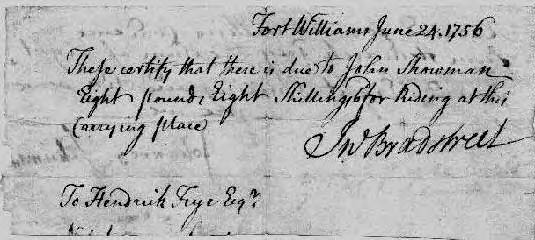 Fort Williams June 24. 1756
These certify that there is due to John Showman
Eight pounds, Eight Shillings for Riding at this
Carrying place
Jno Bradstreet
To Hendrick Frye Esqr.